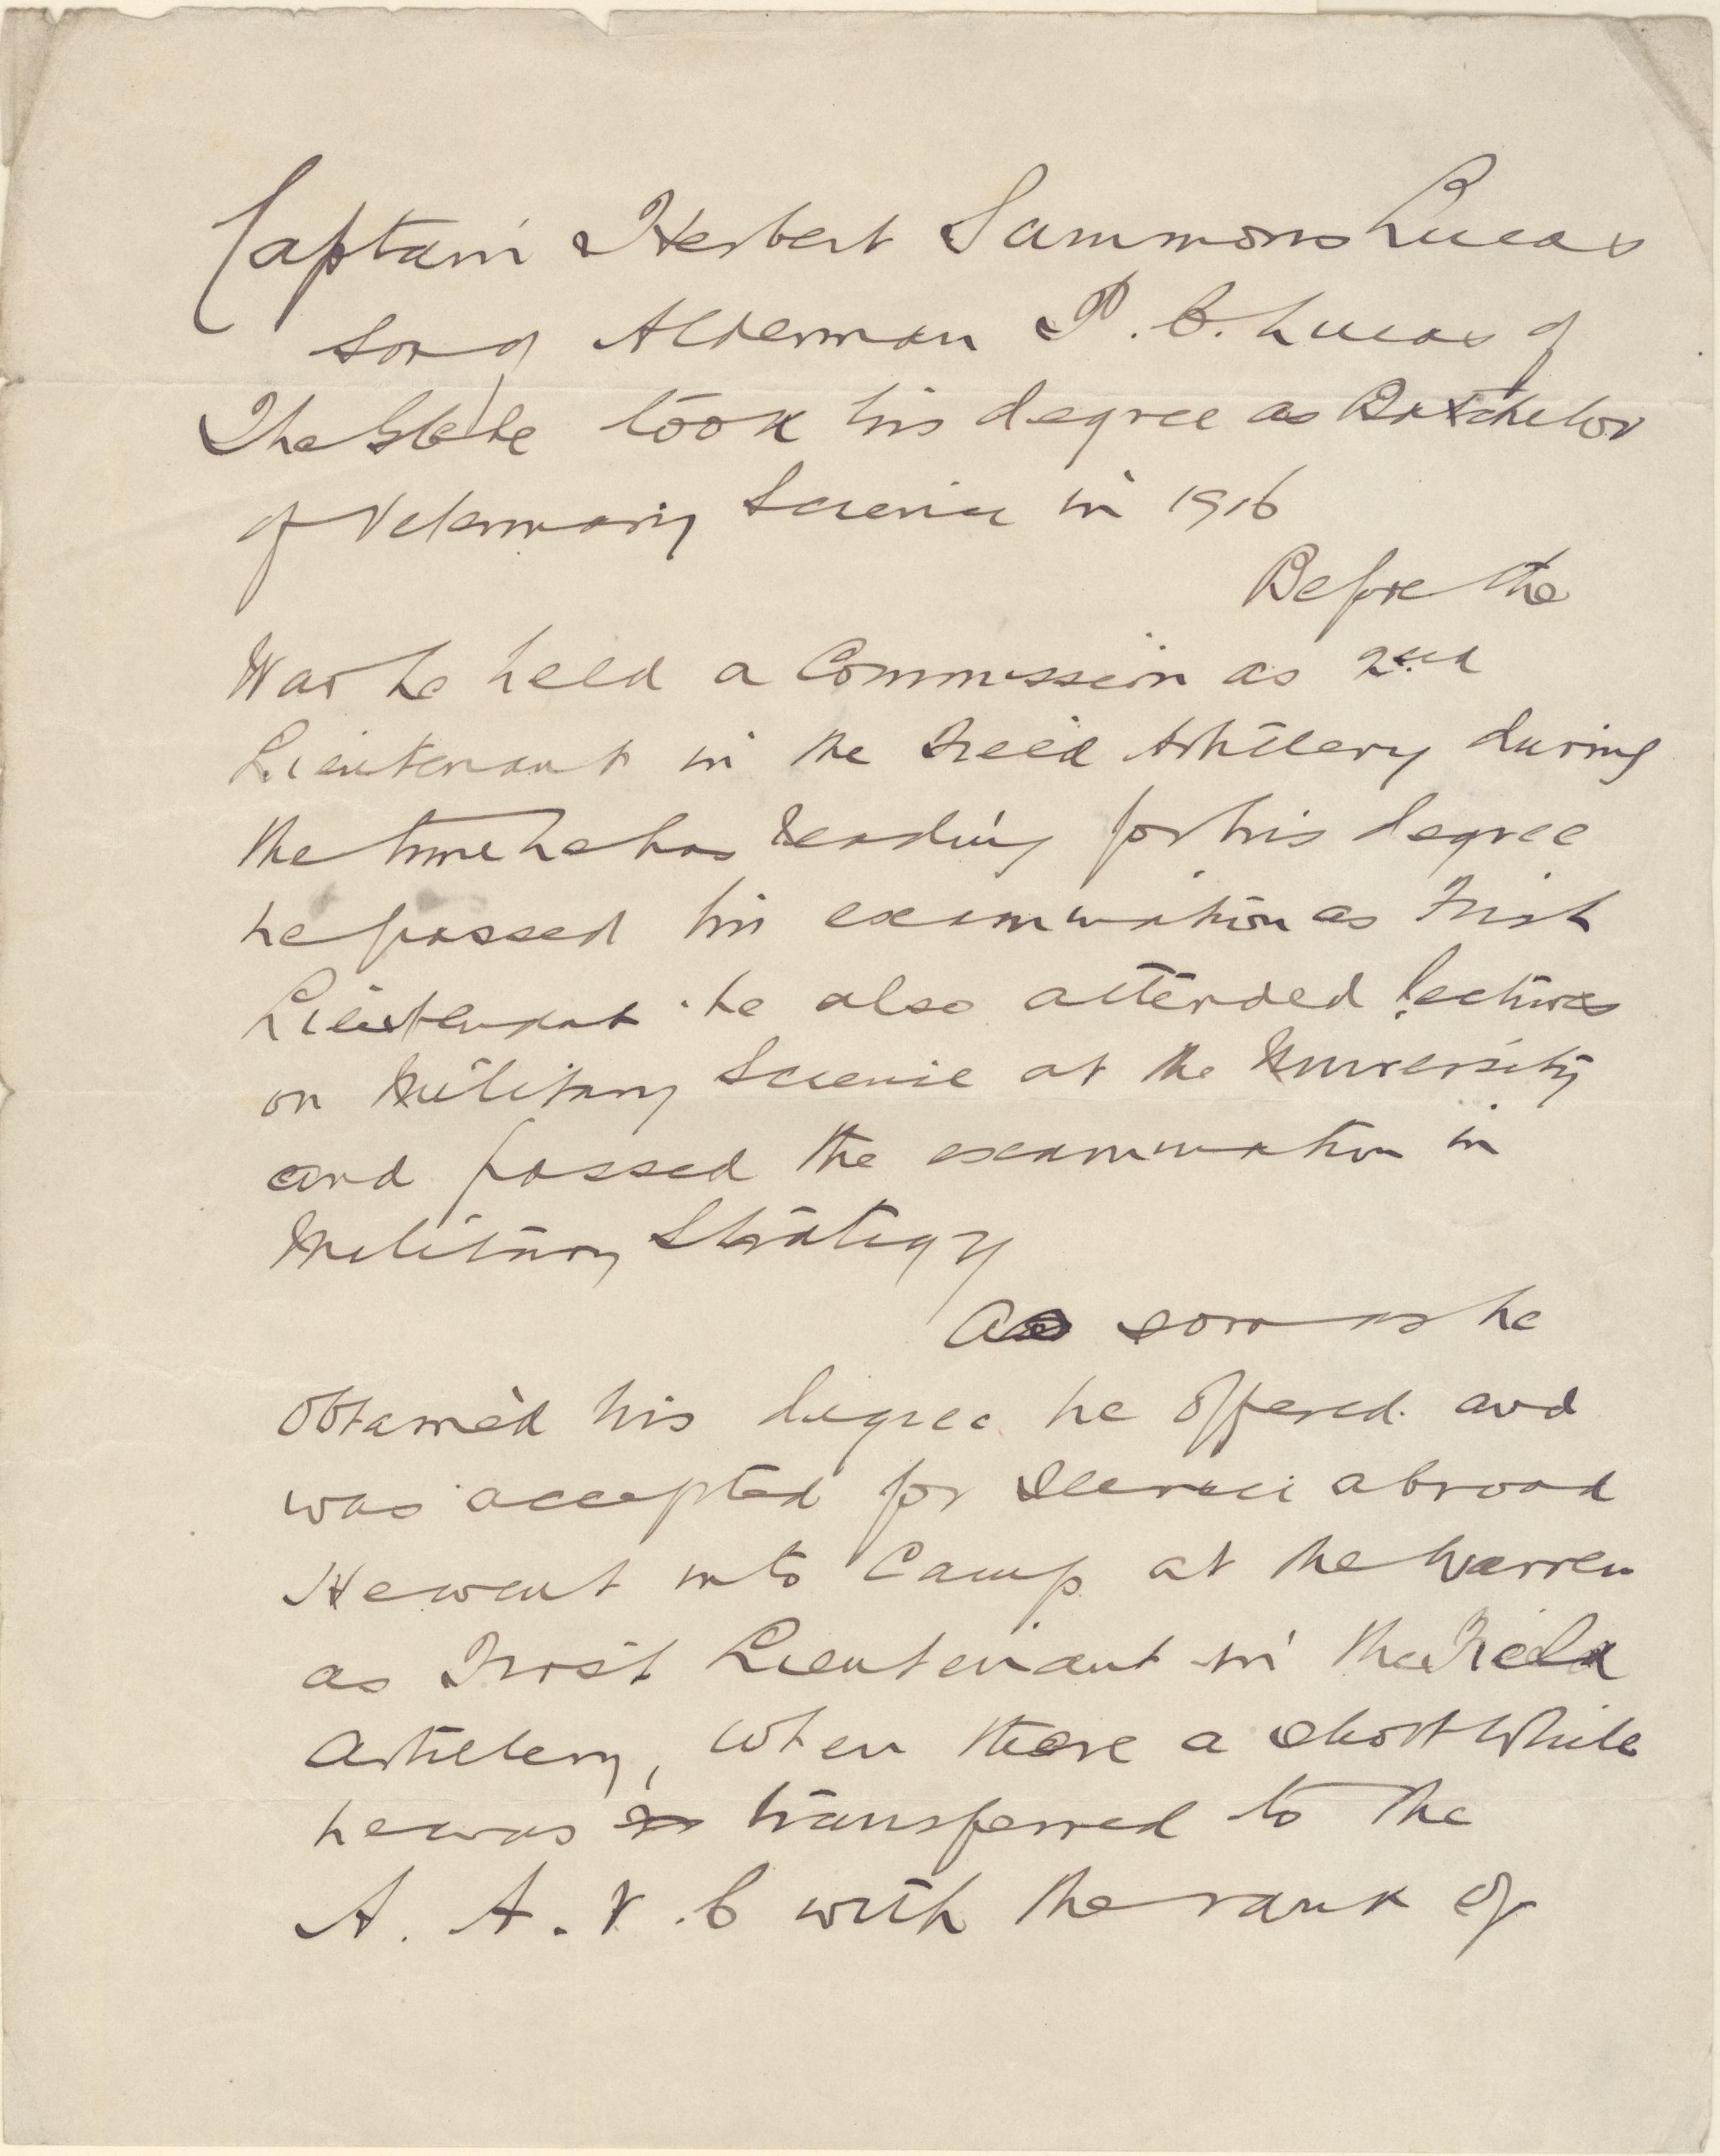 Captain Herbert Sammons Lucas
Son of Alderman P. C. Lucas of
The Glebe took his degree as Batchelor
of Veterinary Science in 1916
Before the
War he held a Commission as 2nd
Lieutenant in the Field Artillery during
the time he was reading for his degree
he passed his examination as First
Lieutenant. he also attended lectures
on Military Science at the University
and passed the examination in
Military Strategy
As soon as he
obtained his degree he offered and
was accepted for service abroad
He went into Camp at the Warren
as First Lieutenant in the Field
Artillery, when there a short while
he was transferred to the
A. A. V. C with the rank of